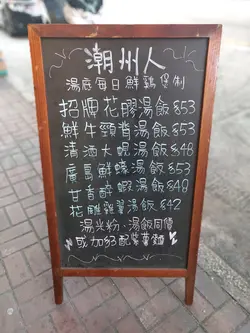 潮州人
湯底每日鮮鷄煲制
招牌花膠湯飯$53
鮮牛頸脊湯飯$53
清酒大蜆湯飯$48
廣島鮮蠔湯飯$53
甘香醉蝦湯飯$48
花雕雞翼湯飯$42
湯米粉、湯飯同價
或加$3配紫菜麵